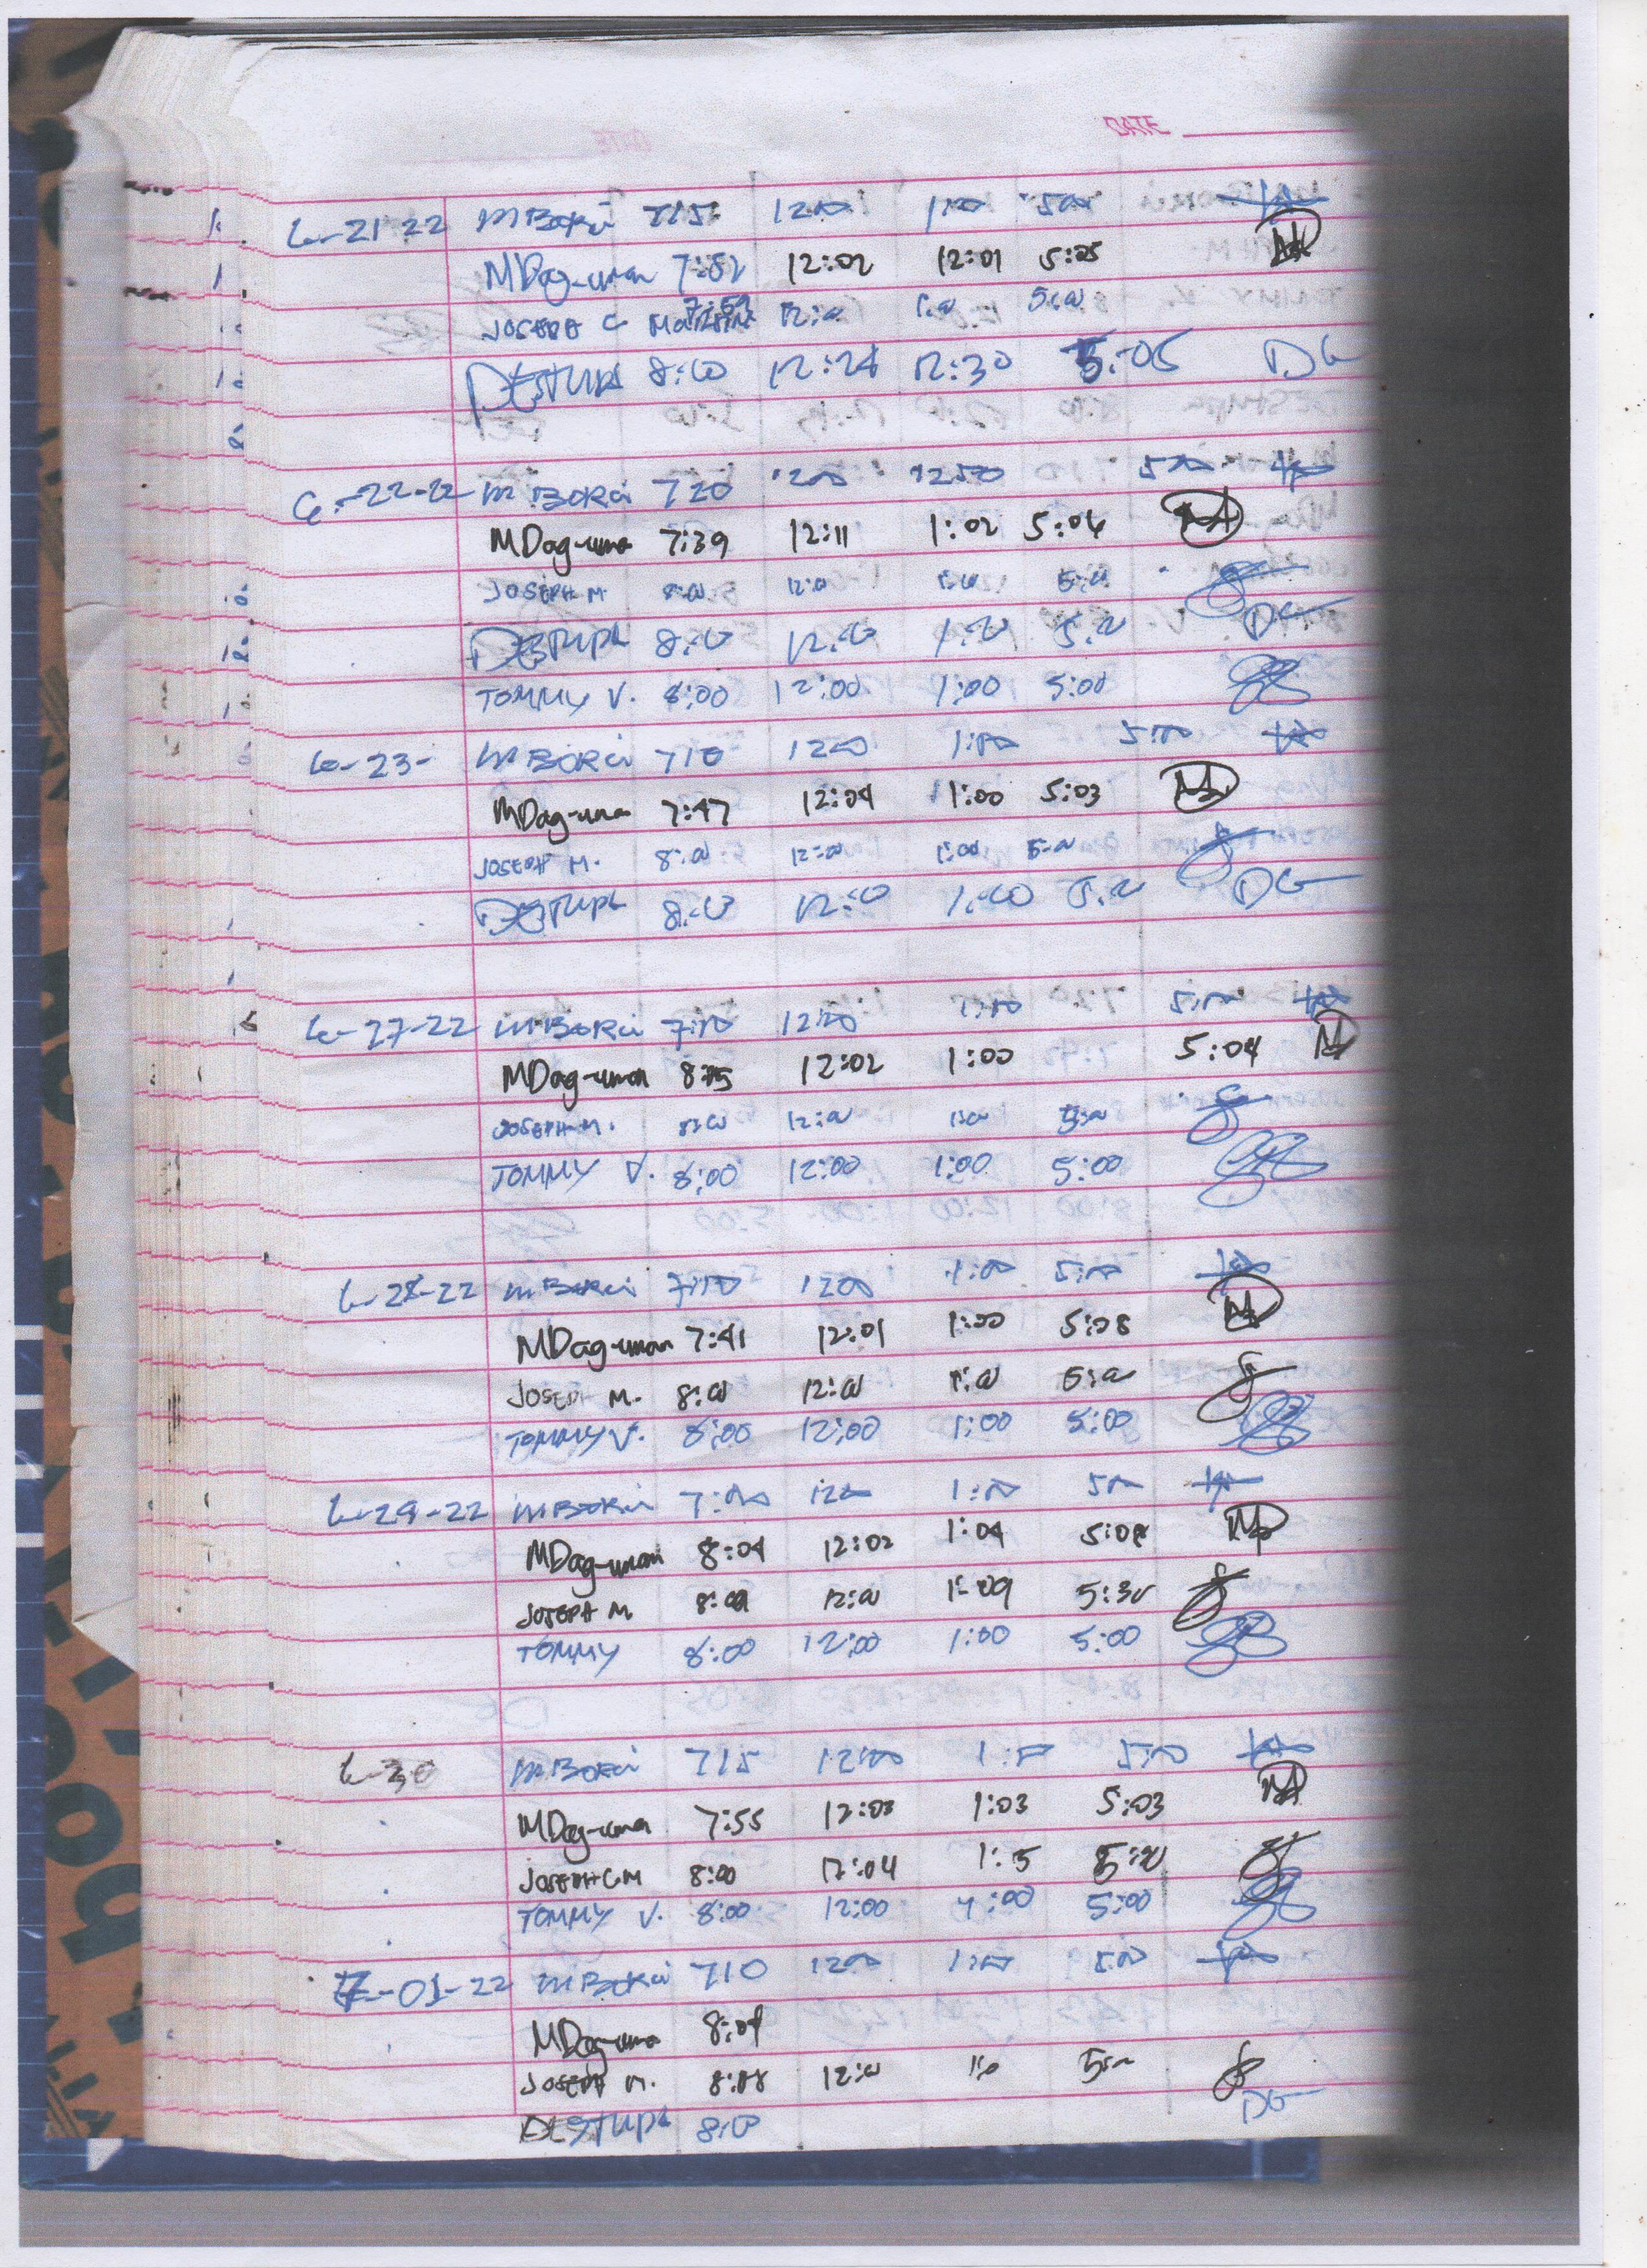 DATE
6-21-22 M Borci 715 1200 1:00 500
MDag-uman 7:52 12:02 12:01 5:05
JOSEPH C 7:59 12:00 1:00 5:00
DESTUPA 8:00 12:24 12:30 5:05 DG
6-22-22 M Borci 720 1200 1250 500
MDag-uman 7:39 12:11 1:02 5:04
JOSEPH M. 8:00 12:00 1:00 5:00
DESTUPA 8:00 12:00 1:00 5:00 DG
TOMMY V. 8:00 12:00 1:00 5:00
6-23- M Borci 710 1200 1:00 5:00
MDag-uman 7:47 12:04 1:00 5:03
JOSEPH M. 8:00 12:00 1:00 5:00
DESTUPA 8:00 12:00 1:00 5:00 DG
6-27-22 M Borci 7:10 1200 1:00 5:00
MDag-uman 8:05 12:02 1:00 5:04
JOSEPH M. 8:00 12:00 1:00 5:00
TOMMY V. 8:00 12:00 1:00 5:00
6-28-22 M Borci 7:10 1200 1:00 5:00
MDag-uman 7:41 12:01 1:00 5:08
JOSEPH M. 8:00 12:00 1:00 5:00
TOMMY V. 8:00 12:00 1:00 5:00
6-29-22 M Borci 7:00 1200 1:00 500
MDag-uman 8:04 12:02 1:04 5:08
JOSEPH M 8:09 12:00 1:09 5:30
TOMMY 8:00 12:00 1:00 5:00
6-30 M Borci 715 12:00 1:00 500
MDag-uman 7:55 12:03 1:03 5:03
JOSEPH C.M 8:00 12:04 1:15 5:20
TOMMY V. 8:00 12:00 1:00 5:00
7-01-22 M Borci 710 1200 1:00 500
MDag-uman 8:04
JOSEPH M. 8:08 12:00 1:00 5:00
DESTUPA 8:00 DG